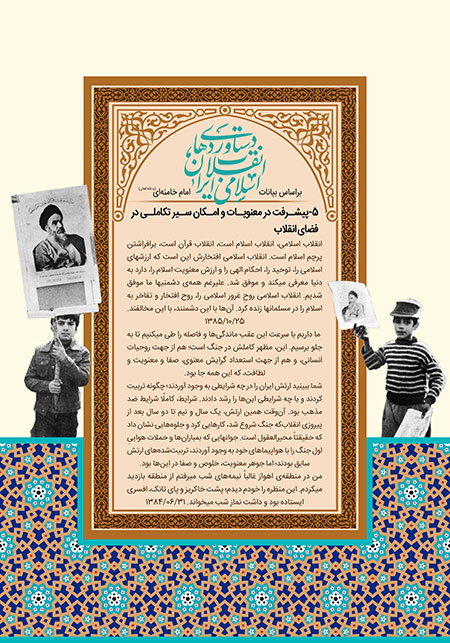 دستاوردهای
انقلاب
اسلامی ایران
براساس بیانات امام خامنه‌ای
۵-پیشـرفت در معنویـات و امـکان سـیر تکاملـی در
فضای انقلاب
انقلاب اسلامی، انقلاب اسلام است، انقلاب قرآن است، برافراشتن
پرچم اسلام است. انقلاب اسلامی افتخارش این است که ارزشهای
اسلامی را، توحید را، احکام الهی را و ارزش معنویت اسلام را، دارد به
دنیا معرفی میکند و موفق شد. علیرغم همه‌ی دشمنیها ما موفق
شدیم. انقلاب اسلامی روح غرور اسلامی را، روح افتخار و تفاخر به
اسلام را در مسلمانها زنده کرد. آن‌ها با این دشمنند، با این مخالفند.
۱۳۸۵/۱۰/۲۵
ما داریم با سرعت این عقب ماندگی‌ها و فاصله را طی میکنیم تا به
جلو برسیم. این، مظهر کاملش در جنگ است؛ هم از جهت روحیات
انسانی، و هم از جهت استعداد گرایش معنوی، صفا و معنویت و
لطافت، که این همه جا بود.
شما ببینید ارتش ایران را در چه شرایطی به وجود آوردند؛ چگونه تربیت
کردند و با چه شرایطی این‌ها را رشد دادند. شرایط، کاملاً شرایط ضد
مذهب بود. آن‌وقت همین ارتش، یک سال و نیم تا دو سال بعد از
پیروزی انقلاب‌که جنگ شروع شد، کارهایی کرد و جلوه‌هایی نشان داد
که حقیقتاً محیرالعقول است. جوانهایی که بمباران‌ها و حملات هوایی
اول جنگ را با هواپیماهای خود به وجود آوردند، تربیت‌شده‌های ارتش
سابق بودند؛ اما جوهر معنویت، خلوص و صفا در این‌ها بود.
من در منطقه‌ی اهواز غالباً نیمه‌های شب میرفتم از منطقه بازدید
میکردم. این منظره را خودم دیدم؛ پشت خاکریز و پای تانک، افسری
ایستاده بود و داشت نماز شب میخواند. ۱۳۸۴/۰۶/۳۱